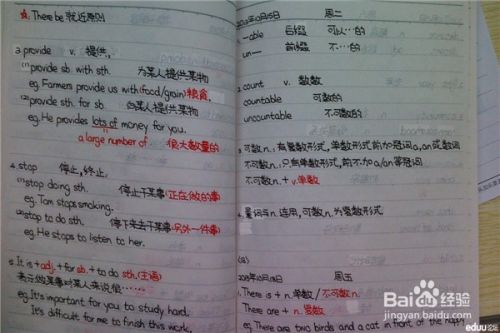 ☆. There be 就近原则
3. provide v. 提供,
(1)provide sb. with sth 为某人提供某物
eg. Farmers provide us with (food/grain)粮食.
(2)provide sth. for sb 为某人提供某物
eg. He provides lots of money for you.
a large number of 很大数量的
4. stop 停止,终止,
(1)stop doing sth. 停止干某事(正在做的事)
eg. Tom stops smoking.
(2)stop to do sth. 停下来去干某事(另外一件事)
eg. He stops to listen to her.
5. It is + adj. + for sb. + to do sth. (主语)
表示做某事对某人来说很……
eg. It's important for you to study hard.
It's difficult for me to finish this work.
2013年10月15日 周二
—able 后缀 可以…的
un— 前缀 不…的
2. count v. 数数
countable 可数的
uncountable 不可数的
3. 可数n.: 有复数形式,单数形式前加a/an或数词
不可数n.: 只有单数形式,前不加a/an等冠词
不可数n. + v.单数
4. 量词与n.连用,可数n.为复数形式
周五
1. There is + n.单数/不可数n.
There are + n.复数
eg. There are two birds and a cat in front of the
Baidu经验
jingyan.baidu.com